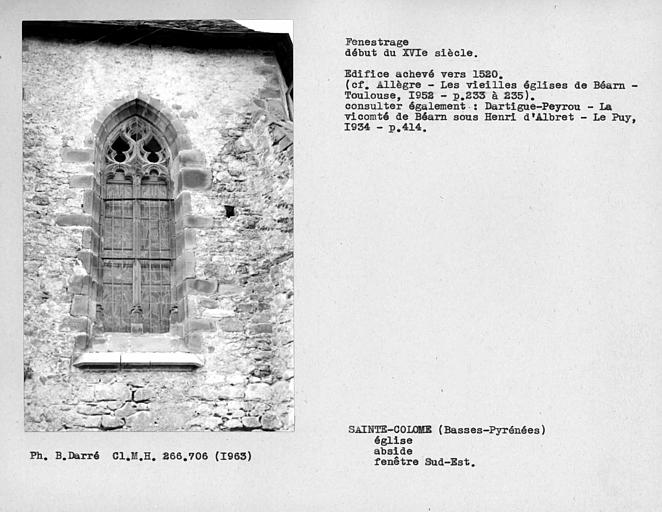 Fenestrage
début du XVIe siècle.
Edifice achevé vers 1520.
(cf. Allègre - Les vieilles églises de Béarn -
Toulouse, I952 - p.233 à 235).
consulter également : Dartigue-Peyrou - La
vicomté de Béarn sous Henri d'Albret - Le Puy,
I934 - p.414.
SAINTE-COLOME (Basses-Pyrénées)
église
abside
fenêtre Sud-Est.
Ph. B.Darré Cl.M.H. 266.706 (I963)